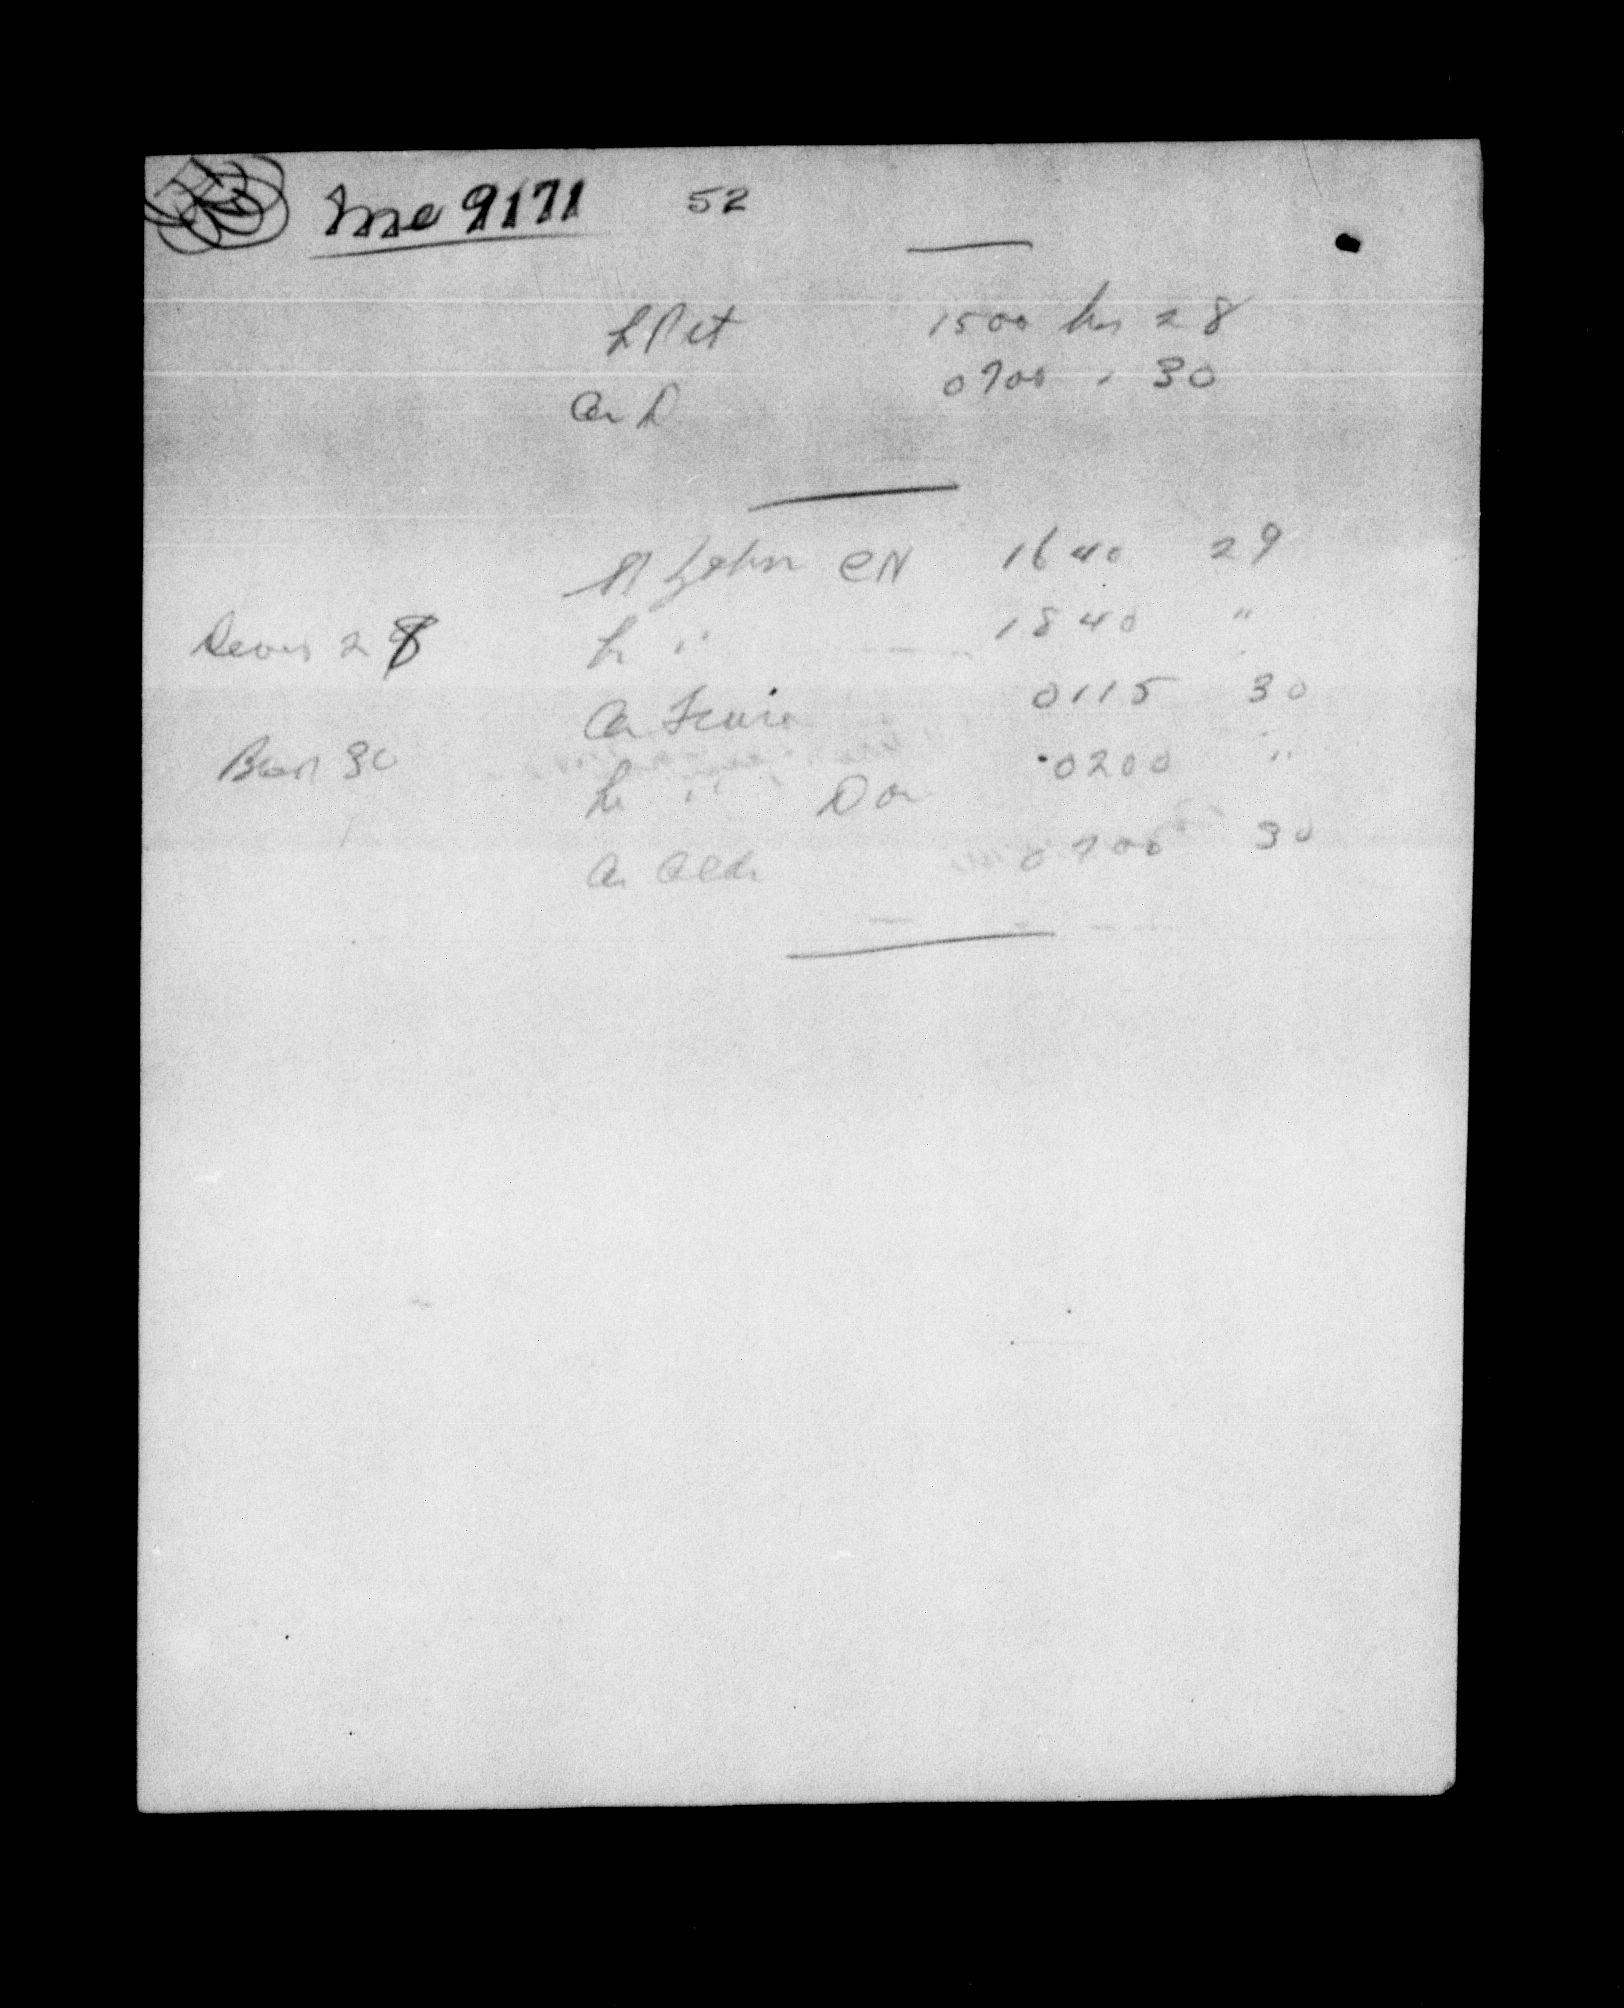 Mc 9171 52
L Pet 1500 hrs 28
Ar D 0700 " 30
St John CN 1640 29
28 Lv " 1840 "
Ar 0115 30
30 Lv " 0200 "
Ar 0700 30